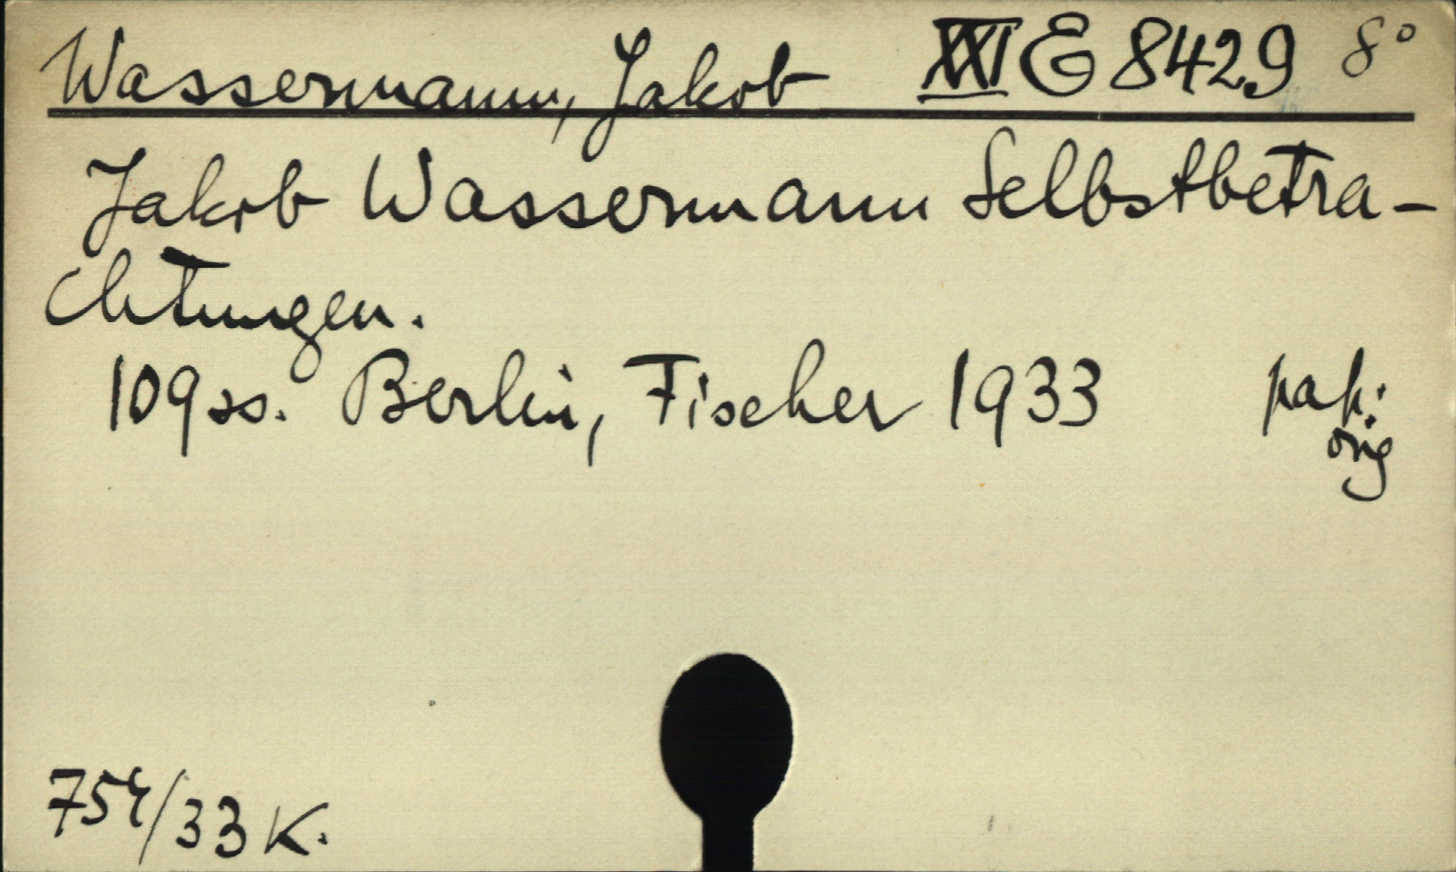 Wassermann, Jakob XXI E 8429 8°
Jakob Wassermann Selbstbetra-
chtungen.
109 ss. Berlin, Fischer 1933 pap:
orig
754/33 K.